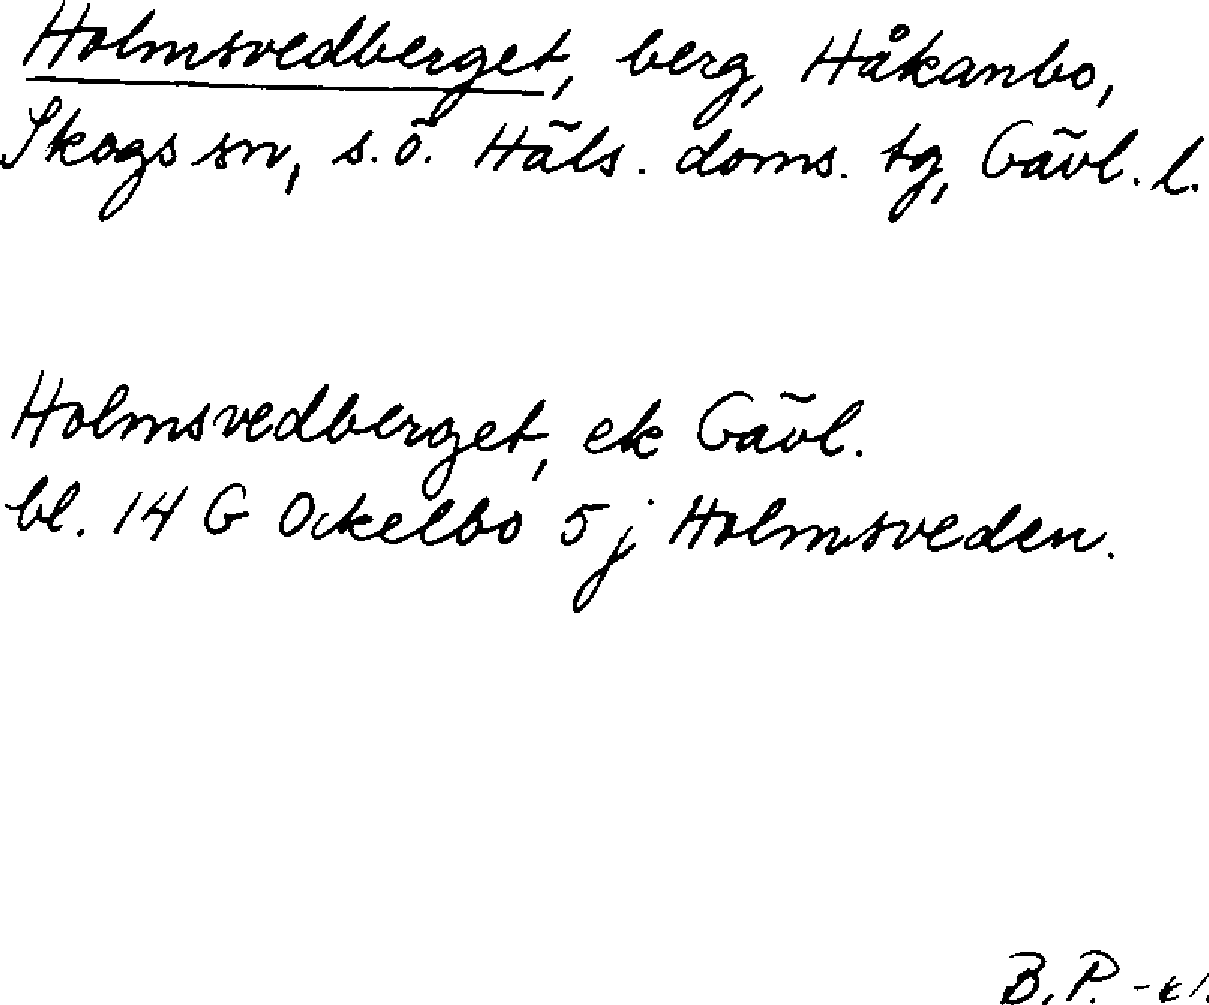 Holmsvedberget, berg, Håkanbo,
Skogs sn, s.ö. Häls. doms. tg, Gävl. l.
Holmsvedberget, ek Gävl.
bl. 14 G Ockelbo 5 j Holmsveden.
B.P.